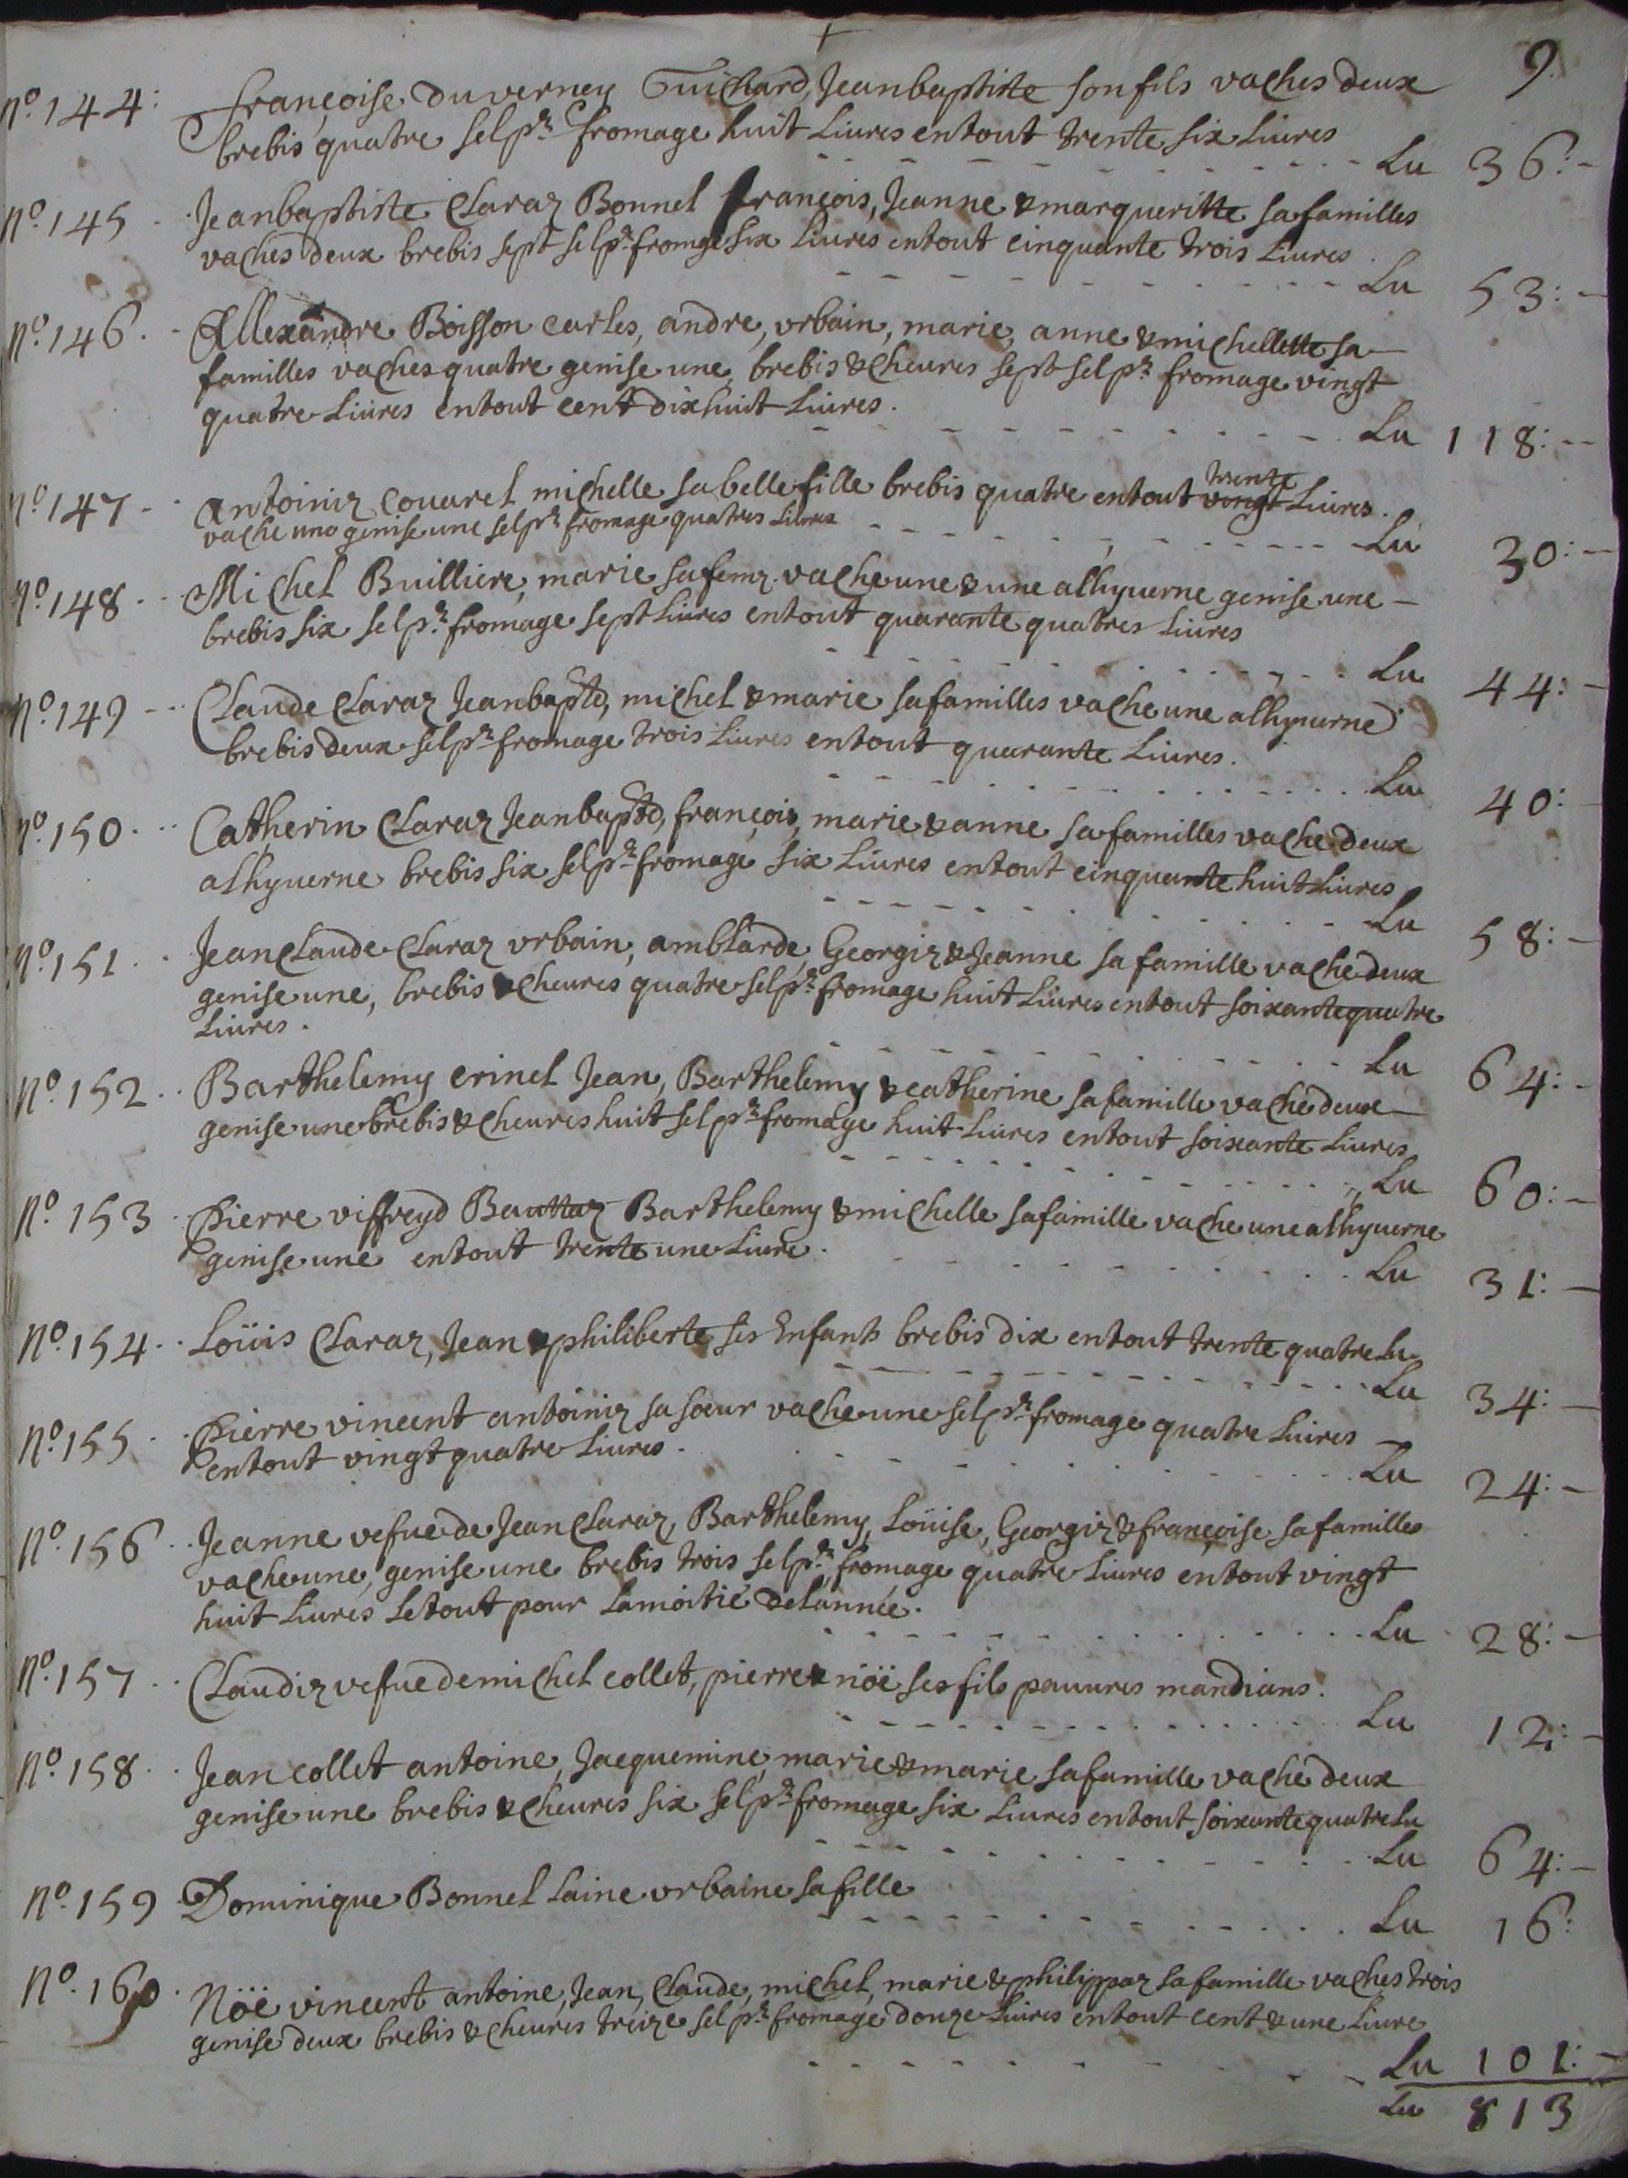 9.
No. 144: françoise duverney Guichard, Jeanbaptiste son fils vaches deux
brebis quatre sel pr. fromage huit Liures entout trente six Liures
Lu 36:-
No. 145 Jeanbaptiste Claraz Bonnel françois, Jeanne & margueritte sa familles
vaches deux brebis sept sel pr. fromge six Liures entout cinquante trois Liures.
Lu 53:-
No. 146. Allexandre Boisson carles, andre, vrbain, marie, anne & michellette sa
familles vaches quatre genise une, brebis & cheures sept sel pr. fromage vingt
quatre Liures entout cent dixhuit Liures.
Lu 118:--
trente
No. 147. antoiniz couurel michelle sa belle fille brebis quatre entout vingt Liures.
vache une genise une sel pr. fromage quatres Liures
Lu 30:-
No. 148. Michel Builliere, marie sa femz. vache une & une alhyuerne genise une -
brebis six sel pr. fromage sept Liures entout quarante quatres Liures
Lu 44:-
No. 149 Claude Claraz Jeanbaptd, michel & marie sa familles vache une alhyuerne
brebis deux sel pr. fromage trois Liures entout quarante Liures.
Lu 40:
No. 150. Catherin Claraz Jeanbaptd, françois, marie & anne sa familles vache deux
alhyuerne brebis six sel pr. fromage six Liures entout cinquante huit Liures
Lu 58:-
No. 151. Jean Claude Claraz vrbain, amblarde, Georgiz & Jeanne sa famille vache deux
genise une, brebis & cheures quatre sel pr. fromage huit Liures entout soixante quatre
Liures.
Lu 64:-
No. 152. Barthelemy crinel Jean, Barthelemy & catherine sa famille vache deux
genise une brebis & cheures huit sel pr. fromage huit Liures entout soixante Liures
Lu 60:-
No. 153 pierre viffreyd Bauttaz Barthelemy & michelle sa famille vache une alhyuerne
genise une entout trente une Liure.
Lu 31:-
No. 154. Loüis Claraz, Jean & philiberte ses Enfants brebis dix entout trente quatre Lu
Lu 34:-
No. 155. pierre vincent antoiniz sa sœur vache une sel pr. fromage quatre Liures
entout vingt quatre Liures.
Lu 24:-
No. 156 Jeanne vefue de Jean Claraz, Barthelemy, Loüise, Georgiz & françoise sa familles
vache une, genise une brebis trois sel pr. fromage quatre Liures entout vingt
huit Liures le tout pour la moitié de l'année.
Lu 28:-
No. 157. Claudiz vefue de michel collet, pierre & nöë ses fils pauures mandians.
Lu 12:-
No. 158. Jean collet antoine, Jacquemine, marie & marie sa famille vache deux
genise une brebis & cheures six sel pr. fromage six Liures entout soixante quatre Lu
Lu 64:-
No. 159. Dominique Bonnel Laine vrbaine sa fille
Lu 16:
No. 160. Nöë vincent antoine, Jean, Claude, michel, marie & philippaz sa famille vaches trois
genise deux brebis & cheures treize sel pr. fromage donze Liures entout cent & une Liure
Lu 101:-
Lu 813